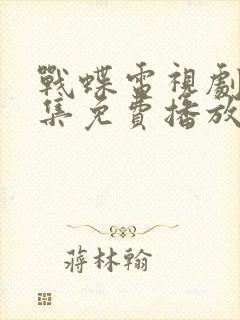 戰蝶雷視劇
集免費播放
蔣林翰